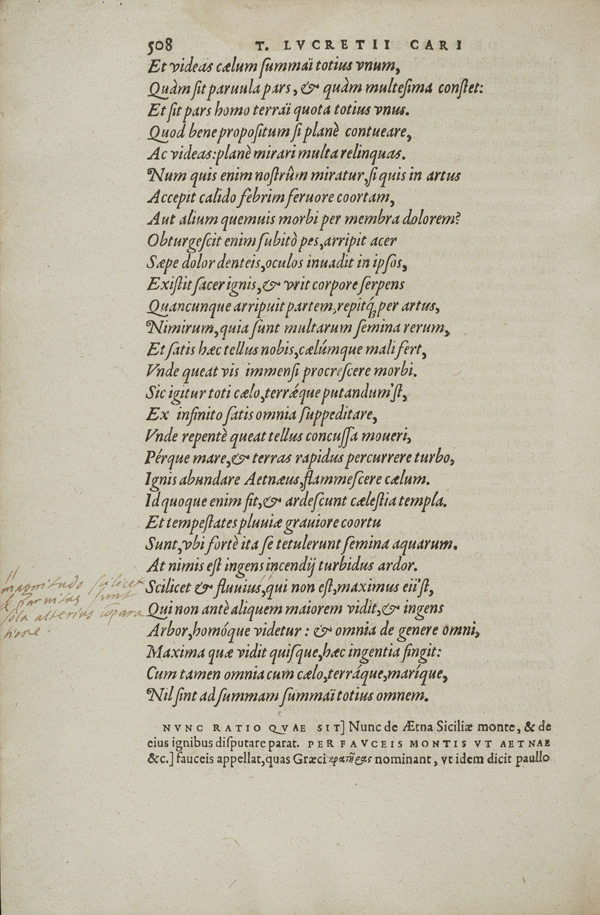 508 T. LVCRETII CARI
Et videas cælum summaï totius vnum,
Quàm sit paruula pars, & quàm multesima constet:
Et sit pars homo terraï quota totius vnus.
Quod bene propositum si planè contueare,
Ac videas: planè mirari multa relinquas.
Num quis enim nostrûm miratur, si quis in artus
Accepit calido febrim feruore coortam,
Aut alium quemuis morbi per membra dolorem?
Obturgescit enim subitò pes, arripit acer
Sæpe dolor denteis, oculos inuadit in ipsos,
Existit sacer ignis, & vrit corpore serpens
Quancunque arripuit partem, repitq́; per artus,
Nimirum, quia sunt multarum semina rerum,
Et satis hæc tellus nobis, cælúmque mali fert,
Vnde queat vis immensi procrescere morbi.
Sic igitur toti cælo, terrǽque putandum'st,
Ex infinito satis omnia suppeditare,
Vnde repentè queat tellus concussa moueri,
Pérque mare, & terras rapidus percurrere turbo,
Ignis abundare Aetnæus, flammescere cælum.
Id quoque enim fit, & ardescunt cælestia templa.
Et tempestates pluuiæ grauiore coortu
Sunt, vbi fortè ita se tetulerunt semina aquarum.
At nimis est ingens incendij turbidus ardor.
Scilicet & fluuius, qui non est, maximus eii'st,
Qui non antè aliquem maiorem vidit, & ingens
Arbor, homóque videtur: & omnia de genere omni,
Maxima quæ vidit quisque, hæc ingentia fingit:
Cum tamen omnia cum cælo, terráque, maríque,
Nil sint ad summam summaï totius omnem.
magnitudo scilicet
& paruitas sunt
sola alterius cõpara
tione.
NVNC RATIO QVAE SIT] Nunc de Ætna Siciliæ monte, & de
eius ignibus disputare parat. PER FAVCEIS MONTIS VT AETNAE
&c.] fauceis appellat, quas Græci κρατῆρας nominant, vt idem dicit paullo